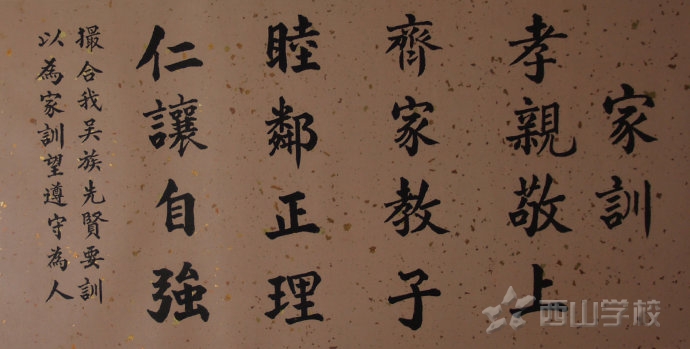 家訓
孝親敬上
齊家教子
睦鄰正理
仁讓自強
撮合我吴族先賢要訓
以為家訓望遵守為人
西山学校